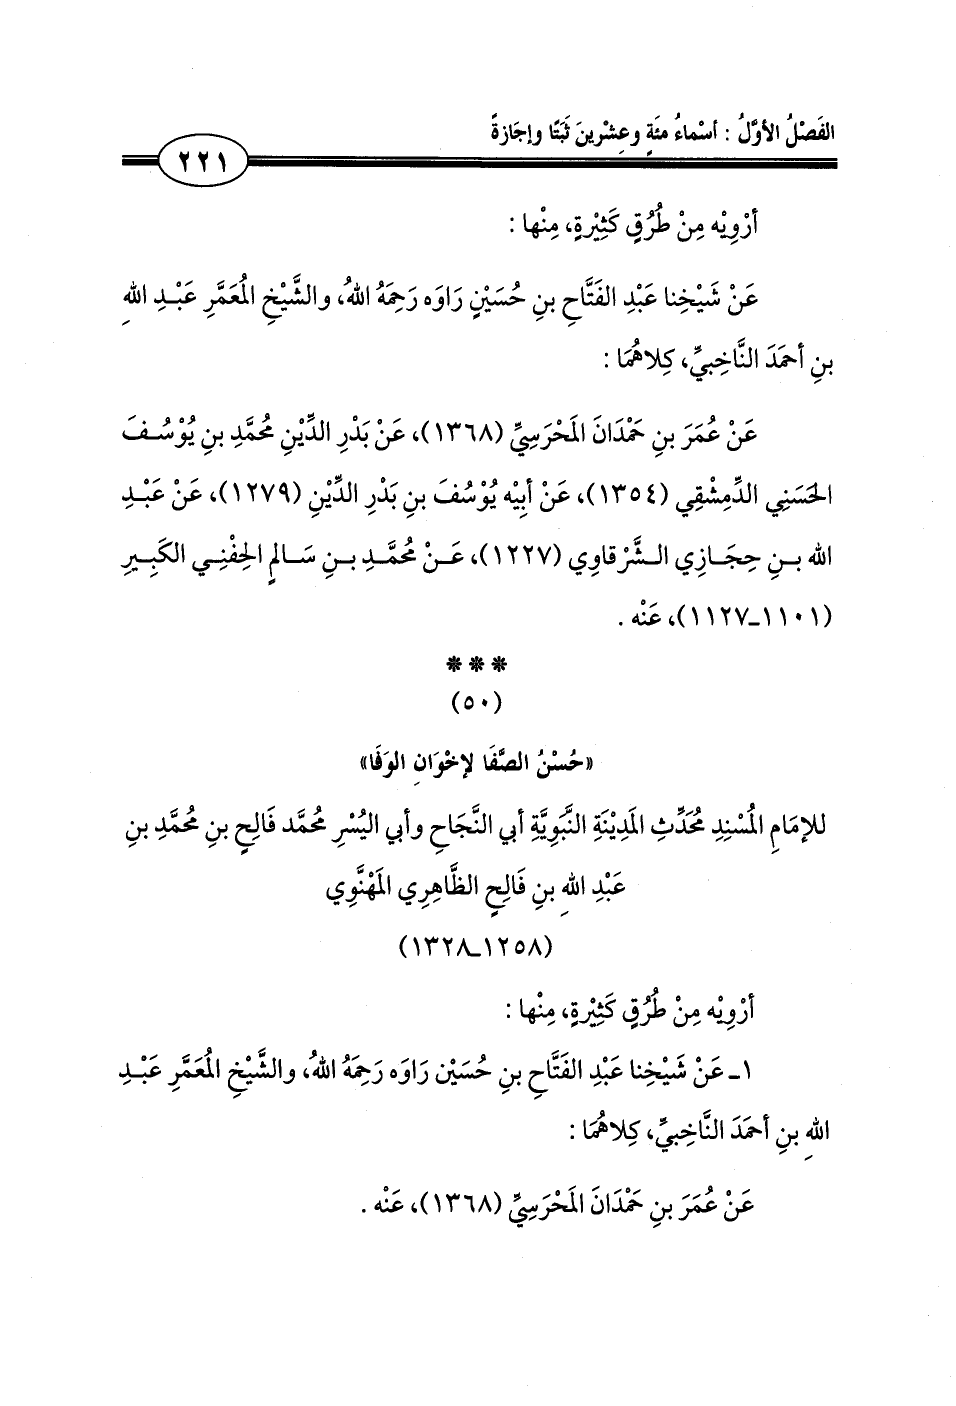 الفَصْلُ الأوَّلُ : أسْماءُ مئَةٍ وعِشْرينَ ثَبَتًا وإجَازةً
٢٢١
أرْوِيْه مِنْ طُرُقٍ كَثِيْرةٍ، مِنْها :
عَنْ شَيْخِنا عَبْدِ الفَتَّاحِ بنِ حُسَيْنٍ رَاوَه رَحِمَهُ اللهُ، والشَّيْخِ المُعَمَّرِ عَبْدِ اللهِ
بنِ أحمَدَ النَّاخِبيِّ، كِلاهُمَا :
عَنْ عُمَرَ بنِ حَمْدَانَ المَحْرَسِيِّ (١٣٦٨)، عَنْ بَدْرِ الدِّيْنِ مُحمَّدِ بنِ يُوْسُفَ
الحَسَنِي الدِّمشْقِي (١٣٥٤)، عَنْ أبِيْه يُوْسُفَ بنِ بَدْرِ الدِّيْنِ (١٢٧٩)، عَنْ عَبْدِ
الله بنِ حِجَازِي الشَّرْقاوِي (١٢٢٧)، عَنْ مُحمَّدِ بنِ سَالمٍ الحِفْنِي الكَبِيرِ
(١١٠١ـ١١٢٧)، عَنْه .
***
(٥٠)
«حُسْنُ الصَّفَا لإخْوَانِ الوَفَا»
للإمَامِ المُسْنِدِ مُحَدِّثِ المَدِيْنَةِ النَّبَوِيَّةِ أبي النَّجَاحِ وأبي اليُسْرِ مُحمَّد فَالِحِ بنِ مُحمَّدِ بنِ
عَبْدِ اللهِ بنِ فَالِحٍ الظَّاهِرِي المَهْنَوِي
(١٢٥٨ـ١٣٢٨)
أرْوِيْه مِنْ طُرُقٍ كَثِيْرةٍ، مِنْها :
١ـ عَنْ شَيْخِنا عَبْدِ الفَتَّاحِ بنِ حُسَيْن رَاوَه رَحِمَهُ اللهُ، والشَّيْخِ المُعَمَّرِ عَبْدِ
اللهِ بنِ أحمَدَ النَّاخِبيِّ، كِلاهُمَا :
عَنْ عُمَرَ بنِ حَمْدَانَ المَحْرَسِيِّ (١٣٦٨)، عَنْه .